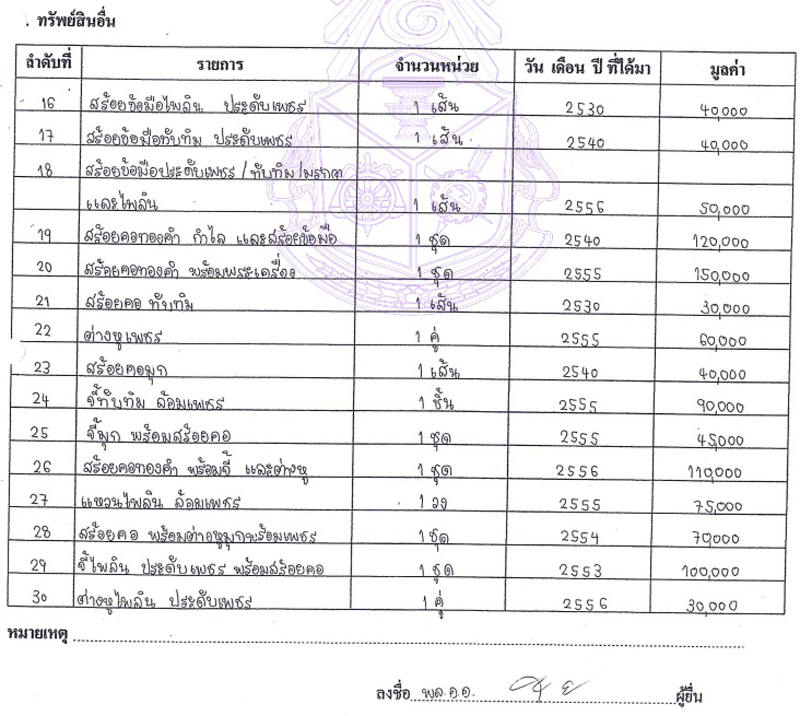 . ทรัพย์สินอื่น
ลำดับที่ รายการ จำนวนหน่วย วัน เดือน ปี ที่ได้มา มูลค่า
16 สร้อยข้อมือไพลิน ประดับเพชร 1 เส้น 2530 40,000
17 สร้อยข้อมือทับทิม ประดับเพชร 1 เส้น 2540 40,000
18 สร้อยข้อมือประดับเพชร / ทับทิม / มรกต
และไพลิน 1 เส้น 2556 50,000
19 สร้อยคอทองคำ กำไล และสร้อยข้อมือ 1 ชุด 2540 120,000
20 สร้อยคอทองคำ พร้อมพระเครื่อง 1 ชุด 2555 150,000
21 สร้อยคอ ทับทิม 1 เส้น 2530 30,000
22 ต่างหูเพชร 1 คู่ 2555 60,000
23 สร้อยคอมุก 1 เส้น 2540 40,000
24 จี้ทับทิม ล้อมเพชร 1 ชิ้น 2555 90,000
25 จี้มุก พร้อมสร้อยคอ 1 ชุด 2555 45,000
26 สร้อยคอทองคำ พร้อมจี้ และต่างหู 1 ชุด 2556 110,000
27 แหวนไพลิน ล้อมเพชร 1 วง 2555 75,000
28 สร้อยคอ พร้อมต่างหูมุกพร้อมเพชร 1 ชุด 2554 70,000
29 จี้ไพลิน ประดับเพชร พร้อมสร้อยคอ 1 ชุด 2553 100,000
30 ต่างหูไพลิน ประดับเพชร 1 คู่ 2556 30,000
หมายเหตุ
ลงชื่อ พล.อ.อ. ผู้ยื่น